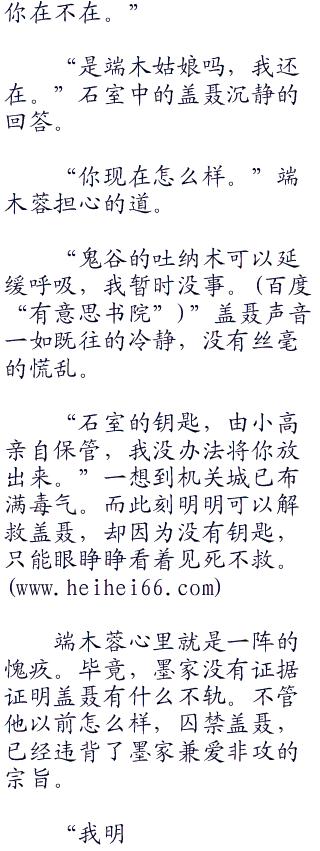 你在不在。”
“是端木姑娘吗，我还
在。”石室中的盖聂沉静的
回答。
“你现在怎么样。”端
木蓉担心的道。
“鬼谷的吐纳术可以延
缓呼吸，我暂时没事。(百度
“有意思书院”)”盖聂声音
一如既往的冷静，没有丝毫
的慌乱。
“石室的钥匙，由小高
亲自保管，我没办法将你放
出来。”一想到机关城已布
满毒气。而此刻明明可以解
救盖聂，却因为没有钥匙，
只能眼睁睁看着见死不救。
(www.heihei66.com)
端木蓉心里就是一阵的
愧疚。毕竟，墨家没有证据
证明盖聂有什么不轨。不管
他以前怎么样，囚禁盖聂，
已经违背了墨家兼爱非攻的
宗旨。
“我明